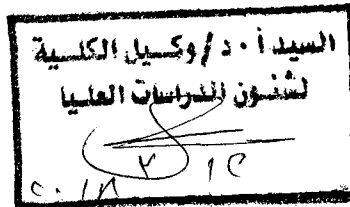 السيد أ.د/وكيل الكلية
لشئون الدراسات العليا